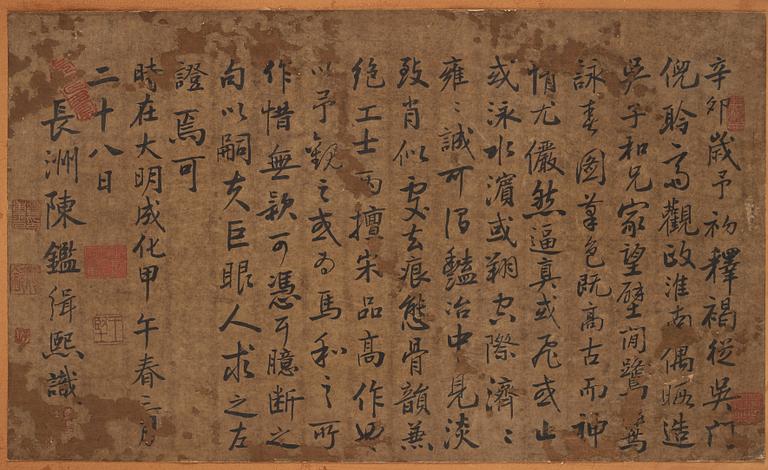 辛卯歲予初釋褐從吳門
倪聆高觀政淮南偶晤造
吳子和兄家望壁間鷺鷥
詠春圖筆色既高古而神
情尤儼然逼真或飛或止
或泳水濱或翔空際濟〻
雍〻誠可謂豔冶中見淡
致肖似處去痕態骨韻兼
絶工士而擅宋品高作也
以予觀之或為馬和之所
作惜無款可憑可臆斷之
句以嗣夫巨眼人求之左
證焉可
時在大明成化甲午春三月
二十八日
長洲陳鑑緝熙識